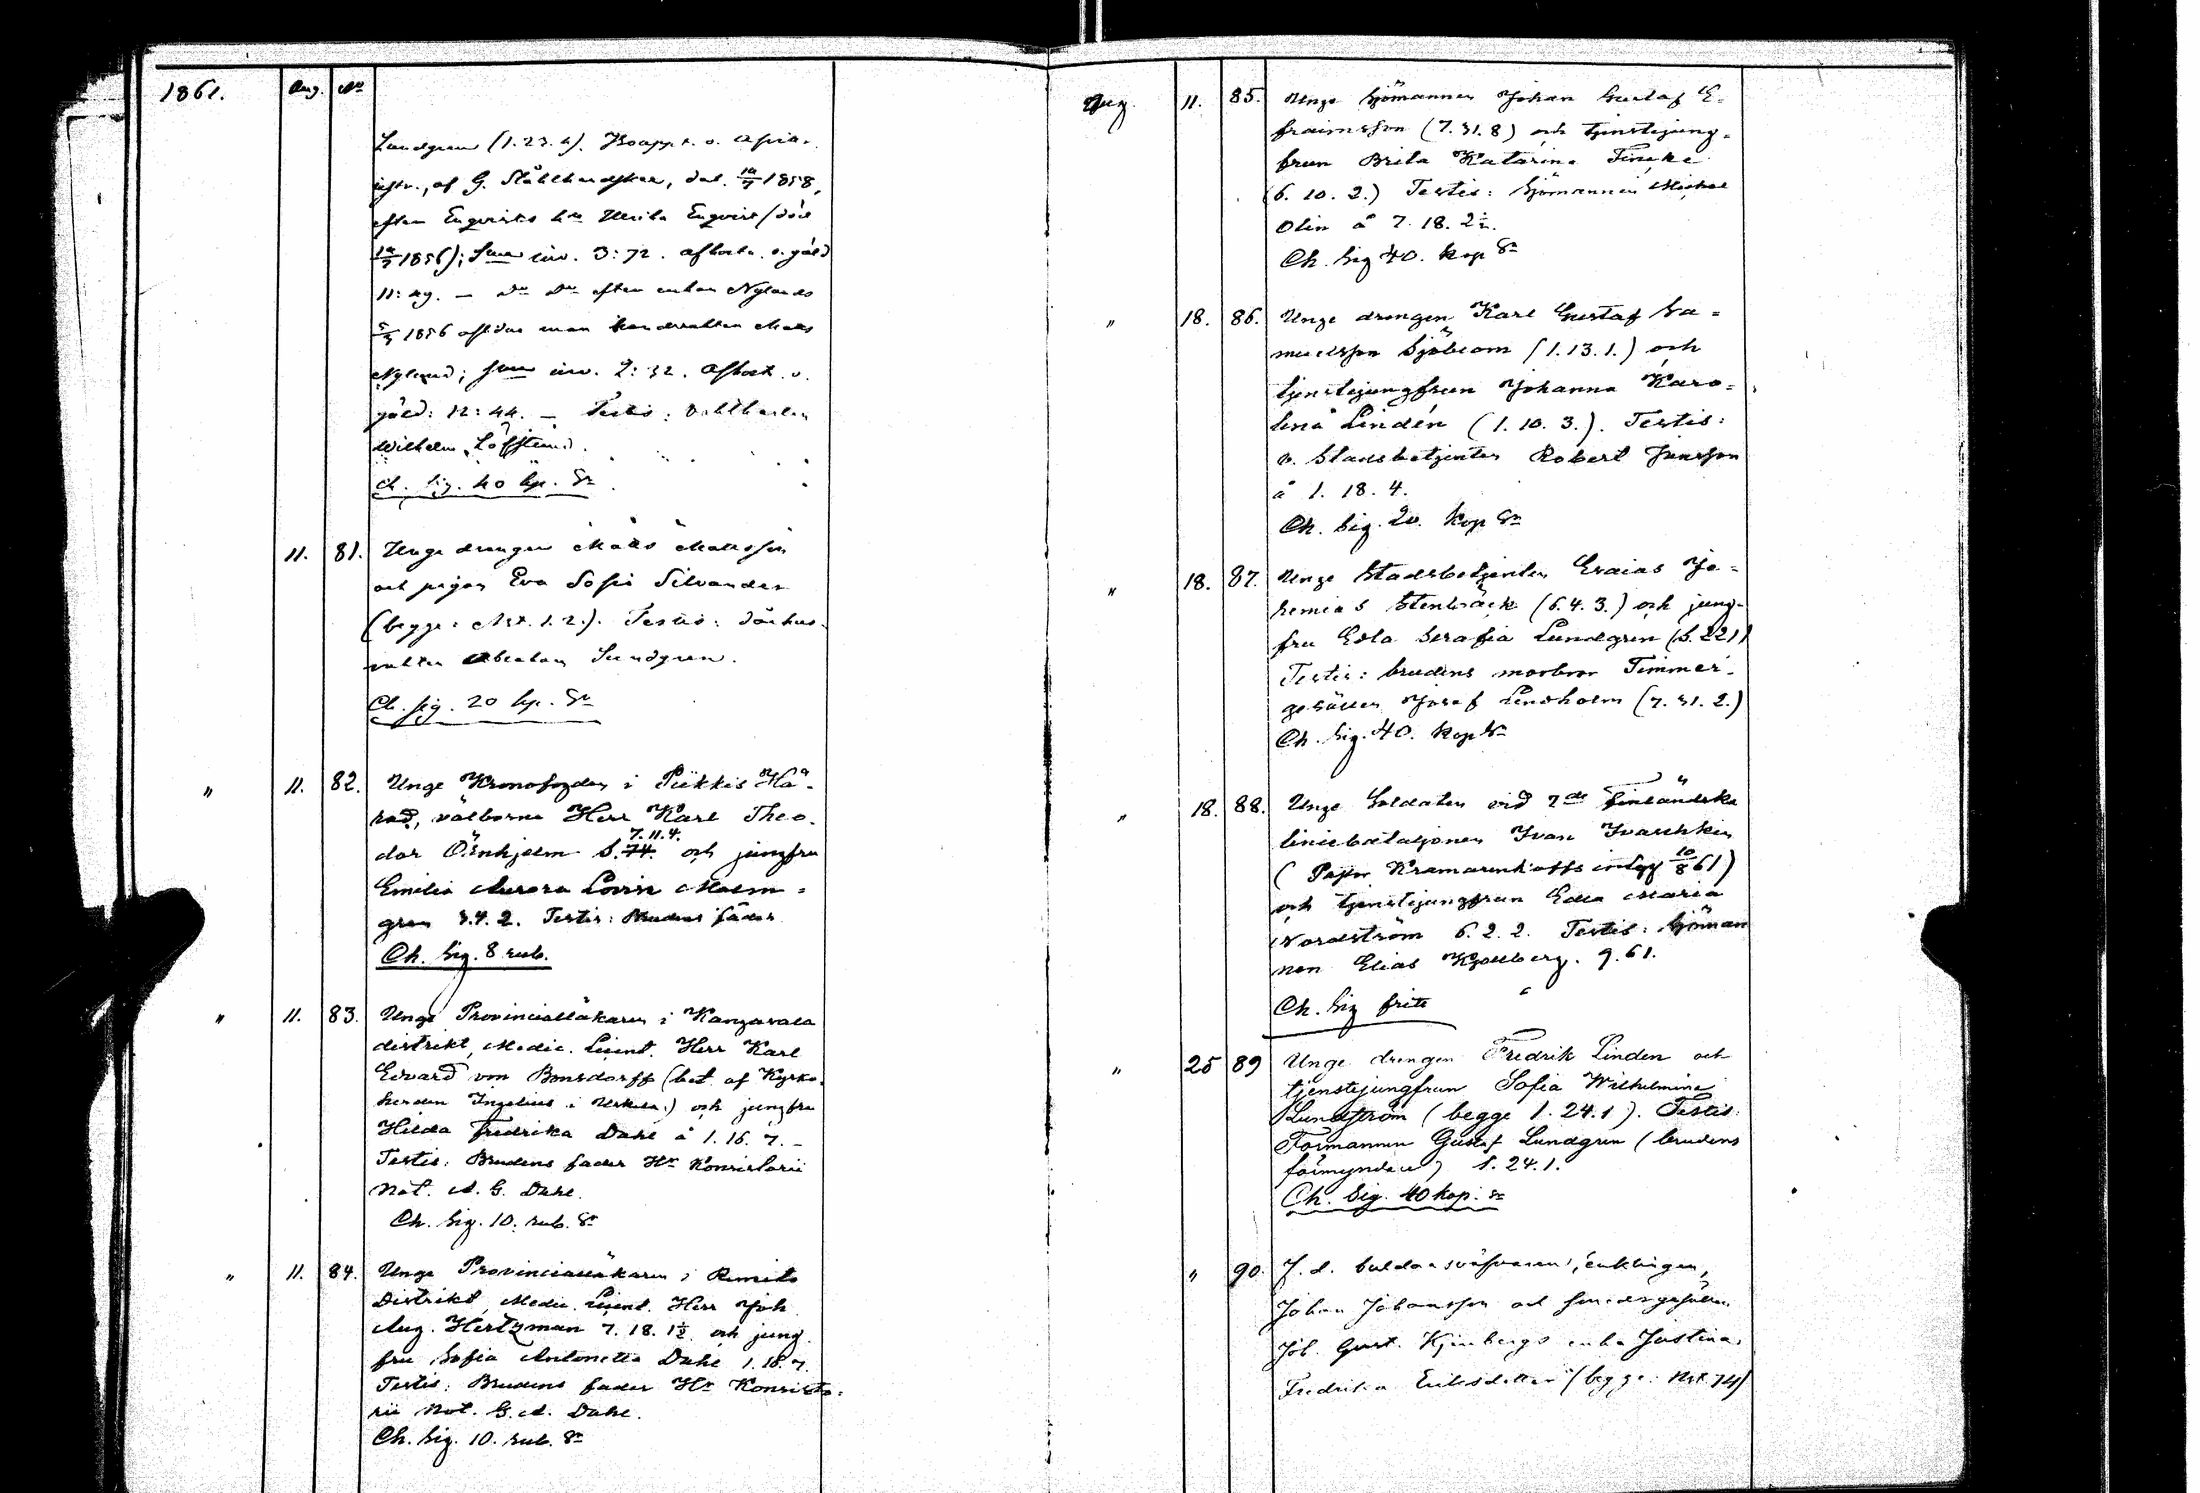 1861. Aug. No
Lundgren (1.23.4). Bouppt. o. afvittr.
instr., af G. Stålhandske, dat. 10/7 1858,
efter Enqvists h:u Ulrika Enqvist (död
1856); Summa inv. 3:72. afkort. o. gäld
11:49. — Do Do efter enkan Nylunds
5/3 1856 aflidne man Mats
Nylund; Summa inv. 2:32. Afkort. o.
gäld: 12:44. — Testis:
Wilhelm Löfstund.
Ch. sig. 40 kp. Sr
11. 81. Unge drengen Mats Matsson
och pigan Eva Sofia Silvander
(begge: Nst. 1.2.). Testis: dårhus-
vakten Abraham Sundgren.
Ch. sig. 20 kp. Sr
" 11. 82. Unge Kronofogden i Piikkis Hä-
rad, välborne Herr Karl Theo-
dor Örnhjelm S. 74. 7.11.4. och jungfru
Emilia Aurora Lovise Malm-
gren 3.4.2. Testis: Brudens fader
Ch. Sig. 8 rub.
" 11. 83. Unge Provincialläkaren i Kangasala
distrikt, Medic. Licent. Herr Karl
Edvard von Bonsdorff (bet. af Kyrko-
herden Ingelius i Urkela) och jungfru
Hilda Fredrika Dahl å 1.16.7. —
Testis: Brudens fader Hr Konsistorii
Not. A. G. Dahl.
Ch. Sig. 10. rub. Sr
" 11. 84. Unge Provincialläkaren i Rimito
Distrikt, Medic. Licent. Herr Joh.
Aug. Hertzman 7.18.1½ och jung
fru Sofia Antonetta Dahl 1.16.7.
Testis: Brudens fader Hr Konsisto-
rii Not. G. A. Dahl.
Ch. Sig. 10. rub. Sr
Aug. 11. 85. Unge Sjömannen Johan Gustaf E-
fraimsson (7.31.8) och tjenstejung-
frun Brita Katarina Fincke
(6.10.2.) Testis: Sjömannen Michael
Olin å 7.18.2½.
Ch. Sig 40. kop Sr
" 18. 86. Unge drengen Karl Gustaf Sa-
muelsson Sjöblom (1.13.1.) och
tjenstejungfrun Johanna Karo-
lina Lindén (1.10.3.). Testis:
v. Stadsbetjenten Robert Jansson
å 1.18.4.
Ch. Sig. 20. Kop Sr
" 18. 87. Unge Stadsbetjenten Esaias Je-
remias Stenbäck (6.4.3.) och jung-
fru Edla Serafia Lundgren (S. 221)
Testis: brudens morbror Timmer-
gesällen Josef Lindholm (7.31.2.)
Ch. Sig. 40. kop Sr
" 18. 88. Unge Soldaten vid 7de Finländska
liniebataljonen Ivan Ivaschkin
(Pastor Kramarenkoffs intyg 10/8 61)
och tjenstejungfrun Edla Maria
Nordström 6.2.2. Testis: Sjöman
nen Elias Kjellberg. 9.61.
Ch. Sig fritt
" 25 89 Unge drengen Fredrik Linden och
tjenstejungfrun Sofia Wilhelmina
Lundström (begge 1.24.1). Testis:
Formannen Gustaf Lundgren (brudens
förmyndare) 1.24.1.
Ch. Sig. 40 kop. Sr
" 90. F. d. buldansväfvaren, enklingen,
Johan Johansson och smedsgesällen
Joh. Gust. Kjinbergs enka Justina
Fredrika Eriksdotter (begge: Nst. 74)